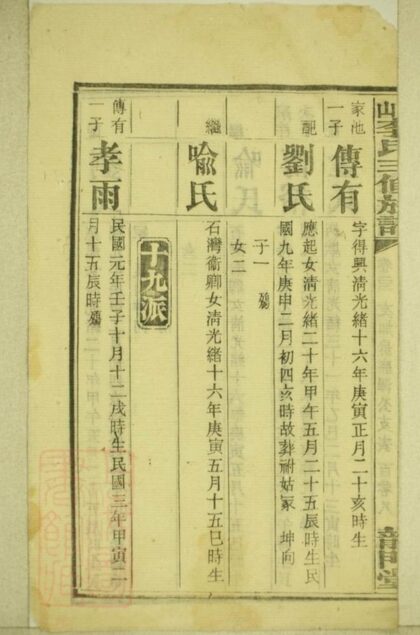 李氏三修族譜
家池
一子
傳有
字得興清光緒十六年庚寅正月二十亥時生
配
劉氏
應起女清光緒二十年甲午五月二十五辰時生民
國九年庚申二月初四亥時故葬祔姑冢 坤向
子一 殤
女二
繼
喩氏
石灣衛卿女清光緒十六年庚寅五月十五巳時生
十九派
傳有
一子
孝雨
民國元年壬子十月十二戌時生民國三年甲寅二
月十五辰時殤